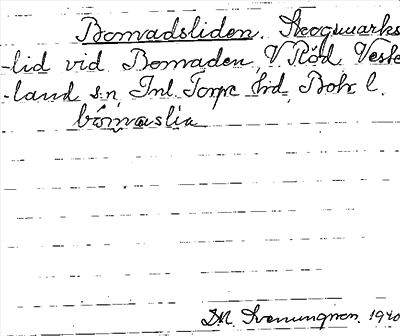 Bomadsliden. Skogsmarks
-lid vid Bomaden, V. Röd Veste
-land sn, Inl. Torpe hd, Boh. l.
bòmaslia
DM. Svenningson. 1940